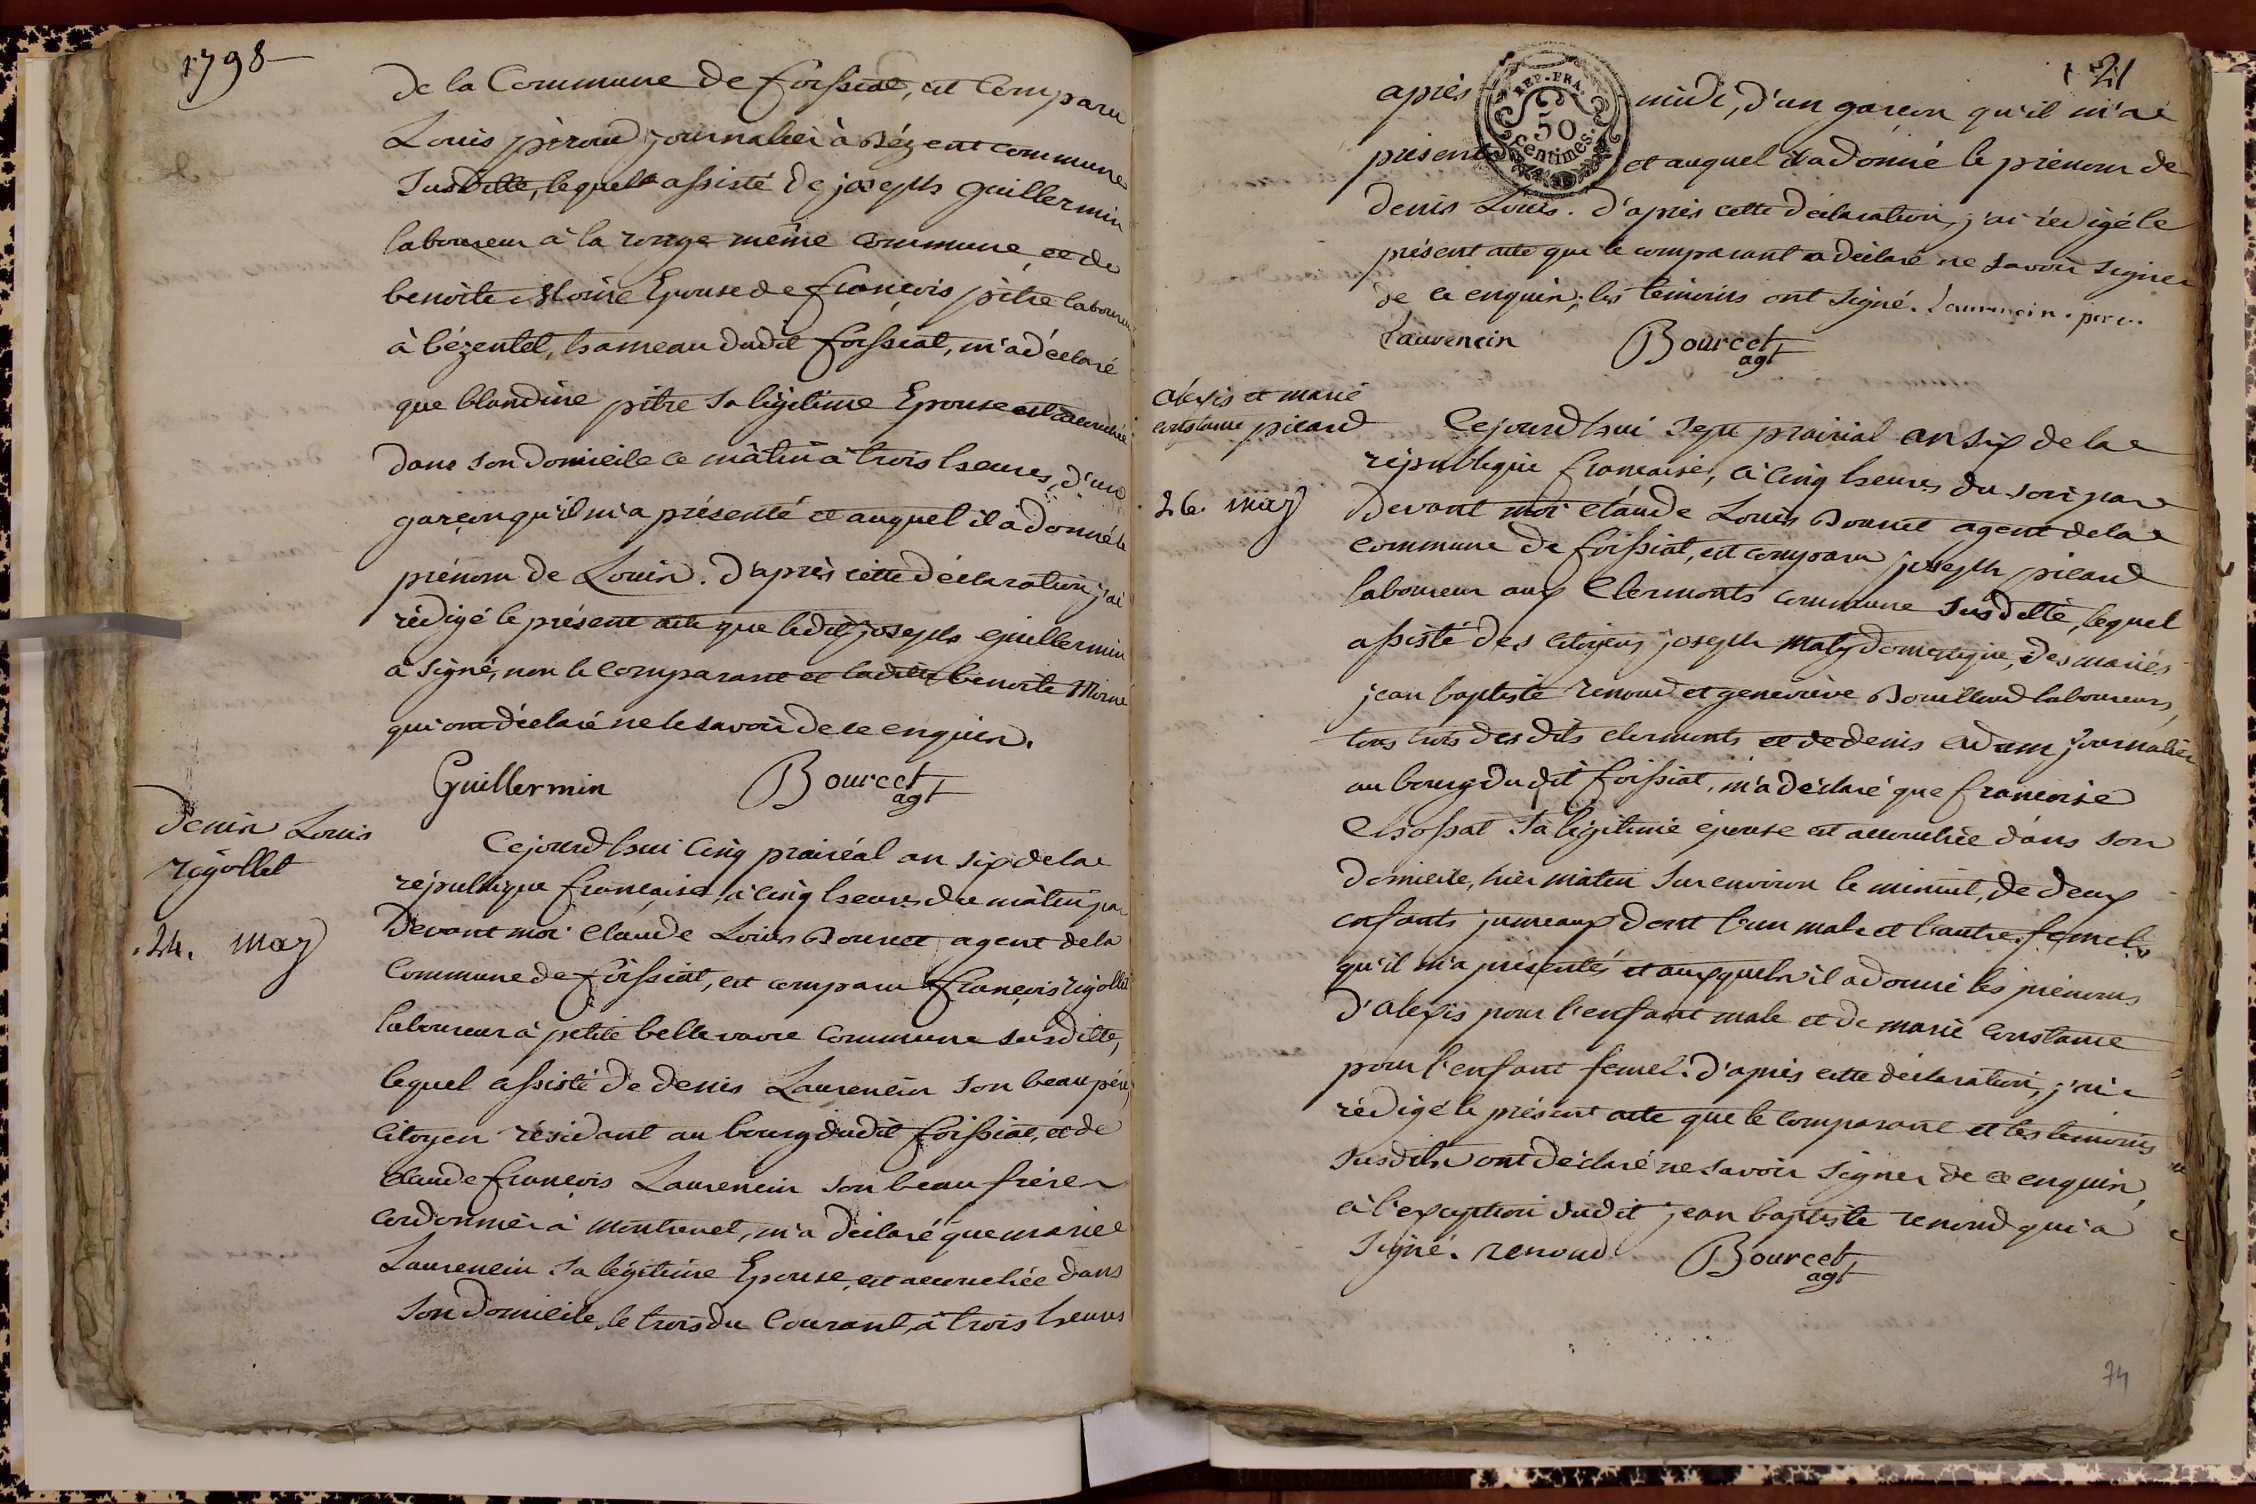 1798
de la Commune de foissiat, est Comparu
Louis péroud journalier à Bézentet commune
Susditte, lequel assisté de joseph guillermin
laboureur à la ronge même commune, et de
benoite Moine Epouse de françois pitre laboureur
à bézentet, hameau dudit foissiat, m'a déclaré
que blandine pitre sa légitime Epouse est accouchée
dans son domicile ce mâtin à trois heures, d'un
garçon qu'il m'a présenté et auquel il a donné le
prénom de Louis. d'après cette déclaration, j'ai
rédigé le présent acte que ledit joseph guillermin
a signé, non le comparant et laditte benoite Moine
qui ont déclaré ne le savoir de ce enquis.
Guillermin Bourcet
agt
Denis Louis
rigollet
24. may
Cejourd'hui Cinq prairéal an six de la
république française, à cinq heures du mâtin par
Devant moi Claude Louis Bourcet agent de la
Commune de foissiat, est comparu françois rigollet
laboureur à petite bellevavre commune susditte,
lequel assisté de denis Laurencin son beau père,
Citoyen résidant au bourg dudit foissiat, et de
claude françois Laurencin son beau frère
cordonnier à montrevel, m'a déclaré que marie
Laurencin sa légitime Epouse, est accouchée dans
son domicile, le trois du Courant, à trois heures
21
après midi, d'un garçon qu'il m'a
REP. FRA.
50
centimes.
présenté et auquel il a donné le prénom de
denis Louis. d'après cette déclaration, j'ai rédigé le
présent acte que le comparant a déclaré ne savoir signer
de ce enquis; les témoins ont signé. Laurencin. père.
Laurencin Bourcet
agt
alexis et marie
constance picard
26. may
Cejourd'hui sept prairial an six de la
république française, à cinq heures du soir par
Devant moi claude Louis Bourcet agent de la
commune de foissiat, est comparu joseph picard
laboureur aux Clermonts commune susditte, lequel
assisté des citoyens joseph Maty domestique, des mariés
jean baptiste renoud et geneviève Bouilloud laboureurs,
tous trois des dits clermonts et de denis adam journalier
au bourg dudit foissiat, m'a déclaré que francoise
Chossat sa légitime épouse est accouchée dans son
domicile, hier matin sur environ le minuit, de deux
enfants jumeaux dont l'un male et l'autre femel,
qu'il m'a présentés et auxquels il a donné les prénoms
d'alexis pour l'enfant male et de marie constance
pour l'enfant femel. d'après cette déclaration, j'ai
rédigé le présent acte que le comparant et les temoins
susdits ont déclaré ne savoir signer de ce enquis,
à l'exception dudit jean baptiste renoud qui a
signé. renoud Bourcet
agt
74